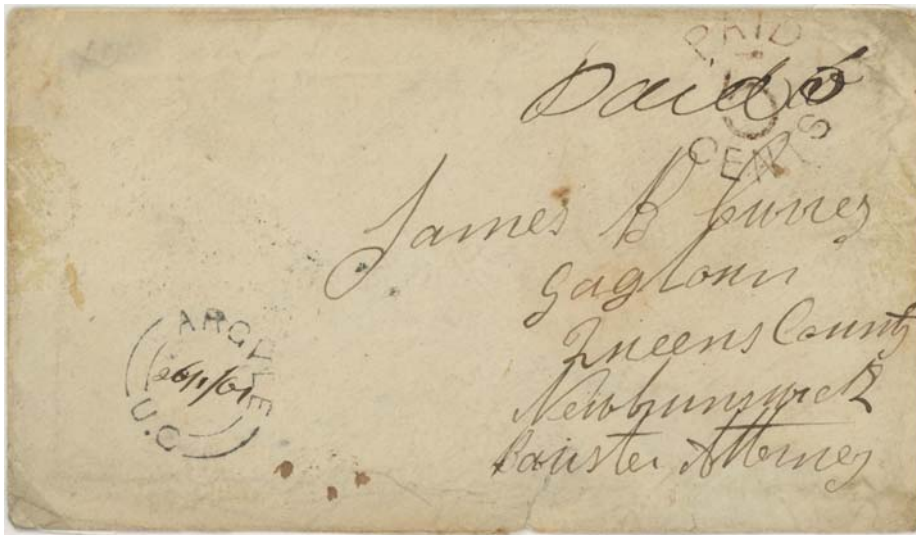 PAID
CENTS
Paid 5
James B Currey
Gagtown
Queens County
Newbrunswick
Barister Attorney
ARGYLE
26/1/61
U.C